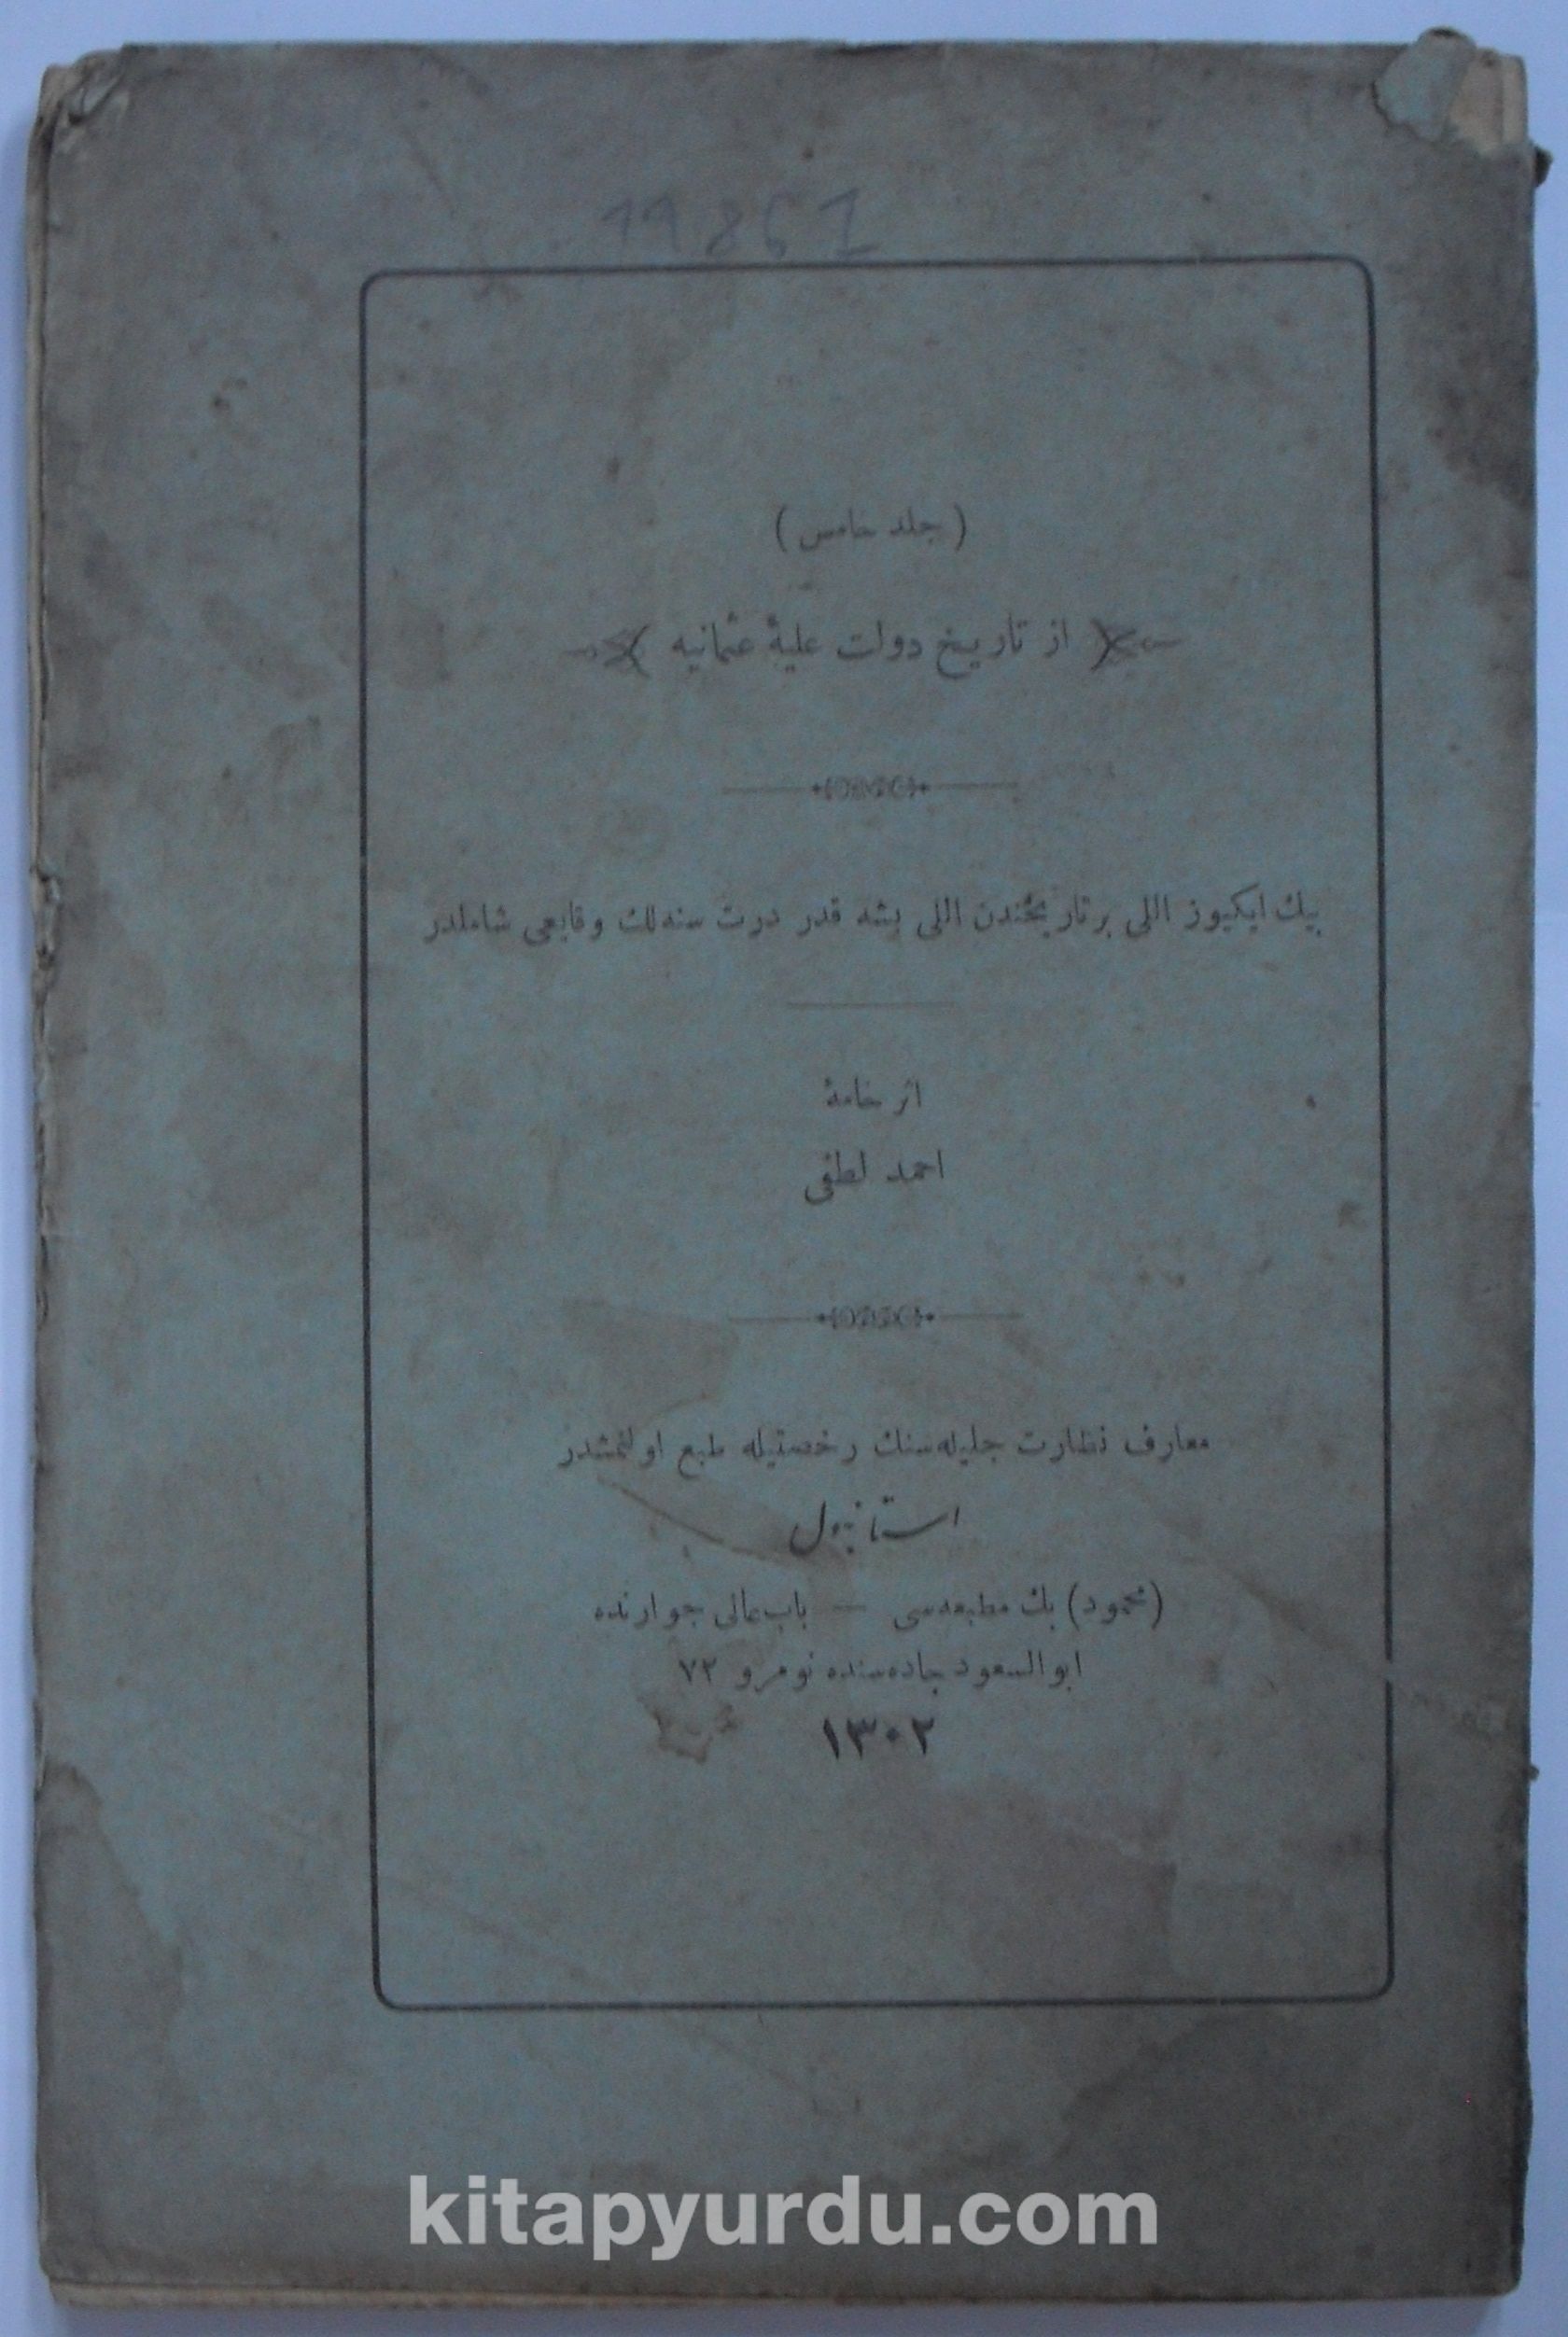 11861
( جلد خامس )
از تاريخ دولت عليۀ عثمانيه
بيك ايكيوز اللى بر تاريخندن اللى بشه قدر درت سنه‌لك وقايعى شاملدر
اثر خامۀ
احمد لطفى
معارف نظارت جليله‌سنك رخصتيله طبع اولنمشدر
استانبول
(محمود) بك مطبعه‌سى — باب‌عالى جوارنده
ابو السعود جاده‌سنده نومرو ٧٢
١٣٠٢
kitapyurdu.com